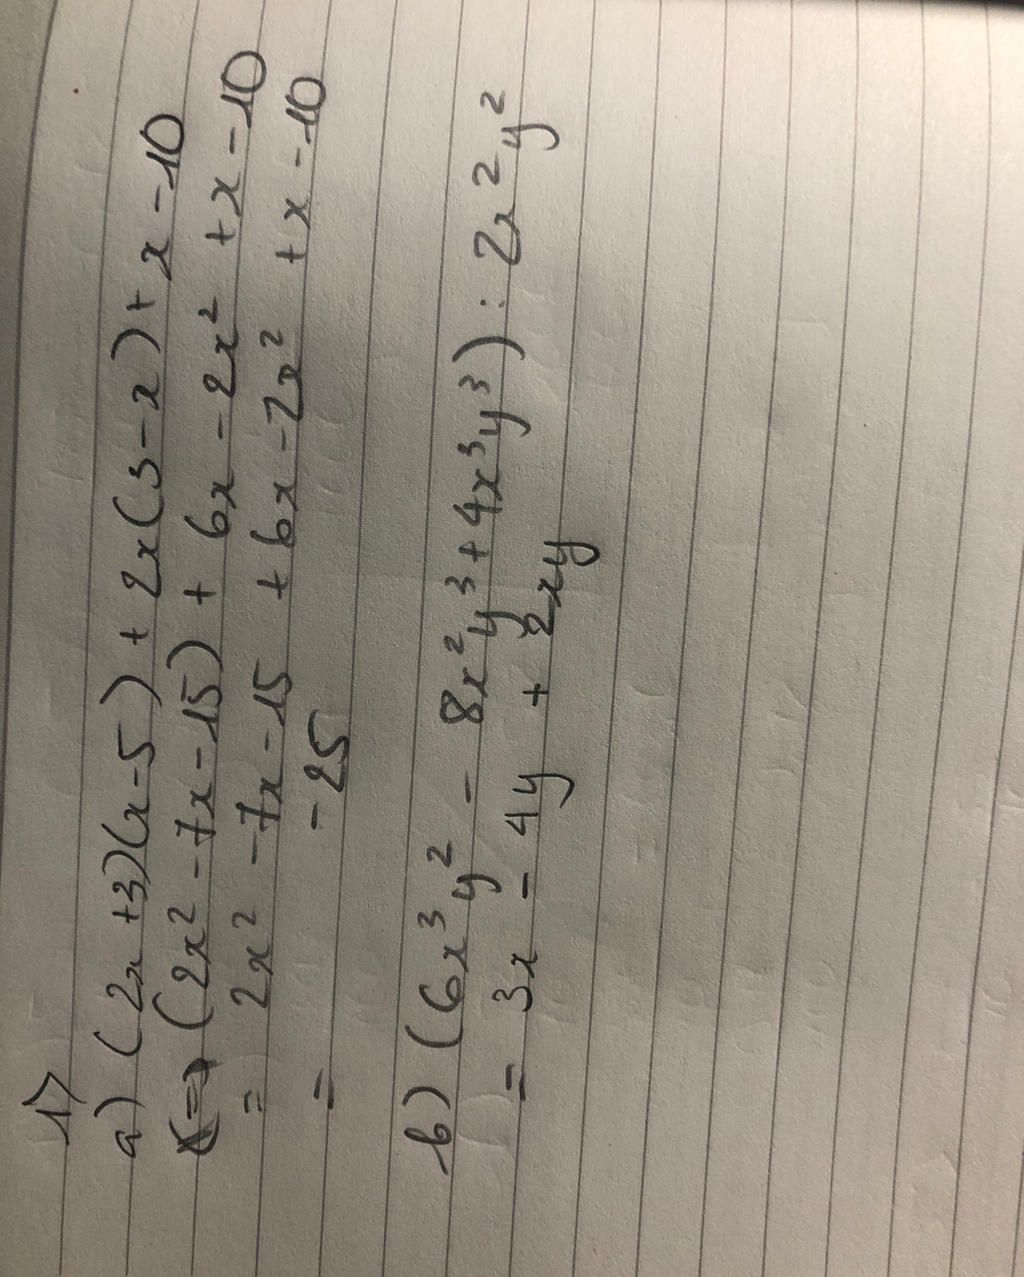 1)
a) (2x+3)(x-5) + 2x(3-x) + x - 10
(2x² - 7x - 15) + 6x - 2x² + x - 10
= 2x² - 7x - 15 + 6x - 2x² + x - 10
= - 25
b) (6x³y² - 8x²y³ + 4x³y³) : 2x²y²
= 3x - 4y + 2xy